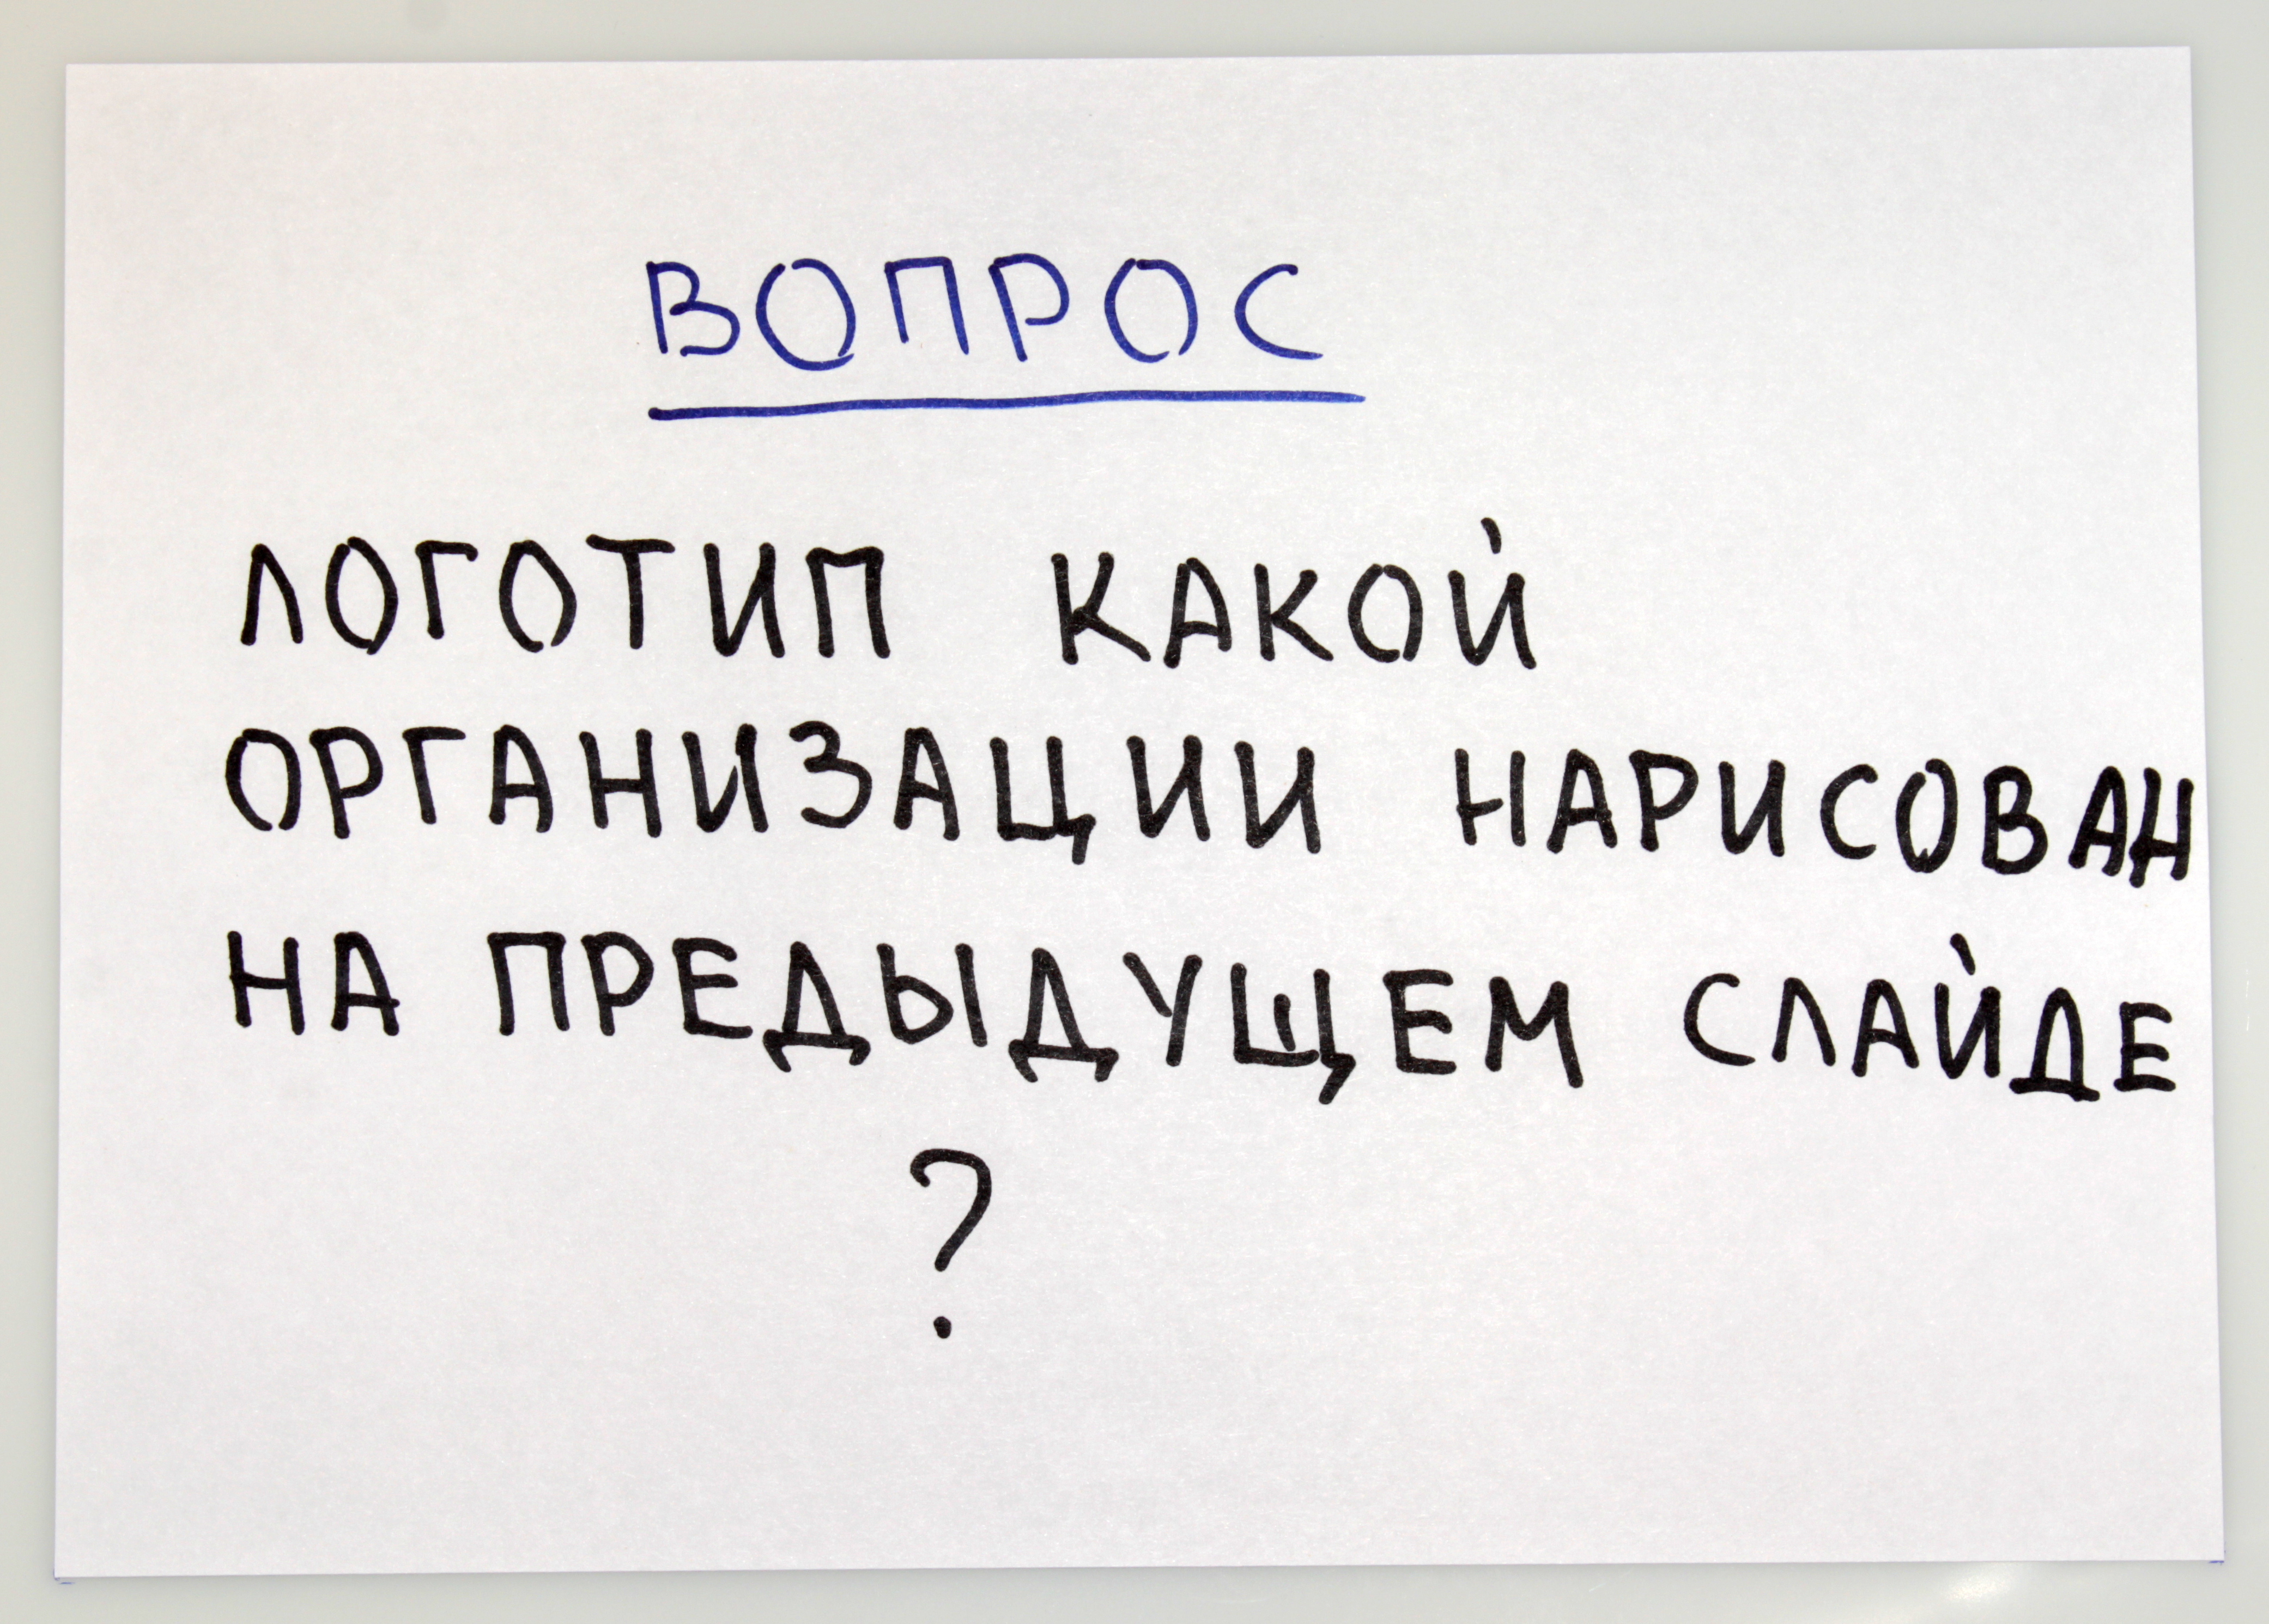 ВОПРОС
ЛОГОТИП КАКОЙ
ОРГАНИЗАЦИИ НАРИСОВАН
НА ПРЕДЫДУЩЕМ СЛАЙДЕ
?